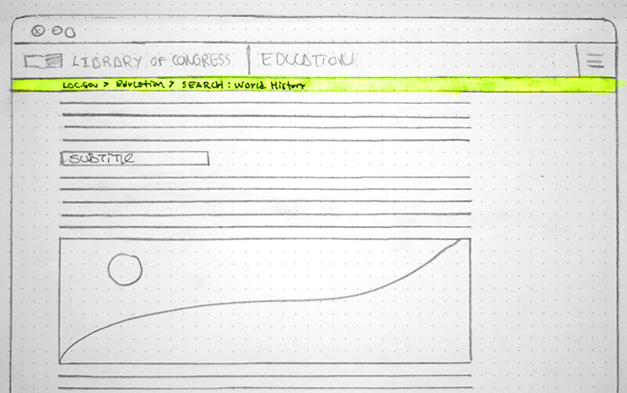 LIBRARY OF CONGRESS | EDUCATION
LOC.GOV > Education > SEARCH : World History
SUBTITLE